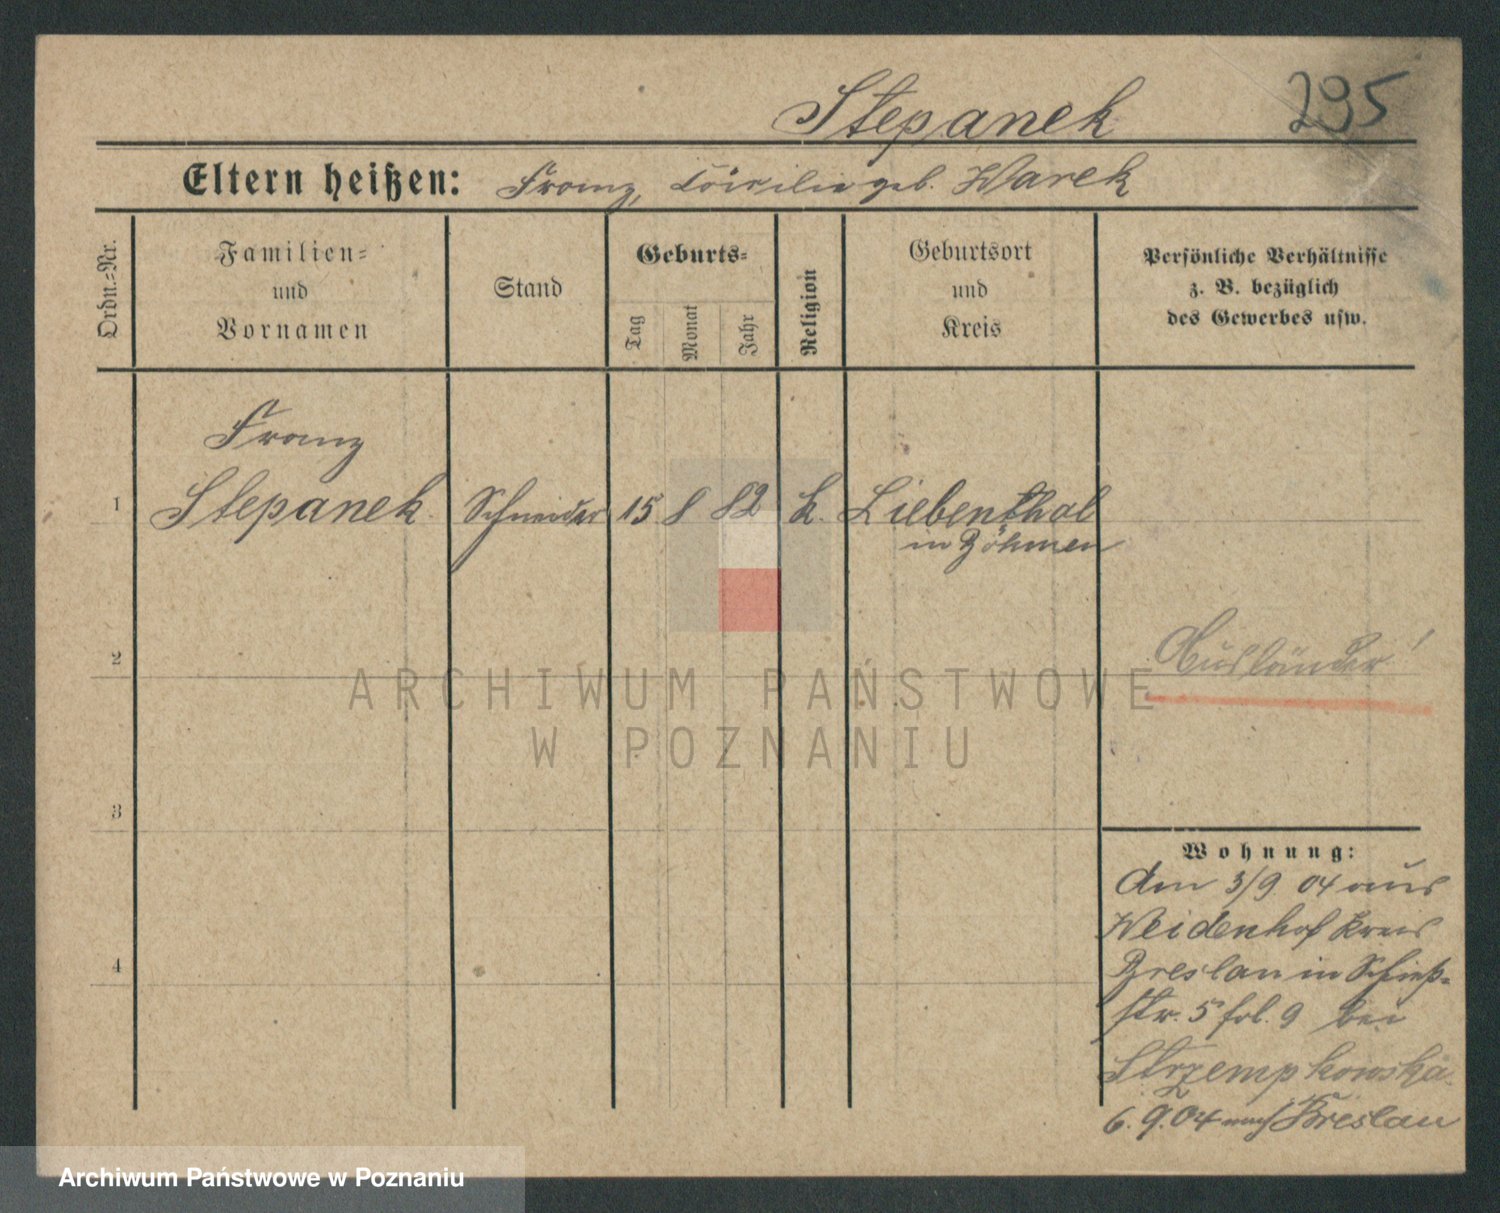 Stepanek
295
Eltern heißen: Franz, Cäcilie geb. Warek
Ordn.=Nr.
Familien=
und
Vornamen
Stand
Geburts=
Tag
Monat
Jahr
Religion
Geburtsort
und
Kreis
Persönliche Verhältnisse
z. B. bezüglich
des Gewerbes usw.
Franz
1 Stepanek Schneider 15 8 82 k. Liebenthal
in Böhmen
2
Ausländer!
3
4
Wohnung:
Am 3/9 04 aus
Weidenhof Kreis
Breslau in Schieß-
str. 5 fol. 9 bei
Strzempkowska
6.9.04 nach Breslau
ARCHIWUM PAŃSTWOWE
W POZNANIU
Archiwum Państwowe w Poznaniu